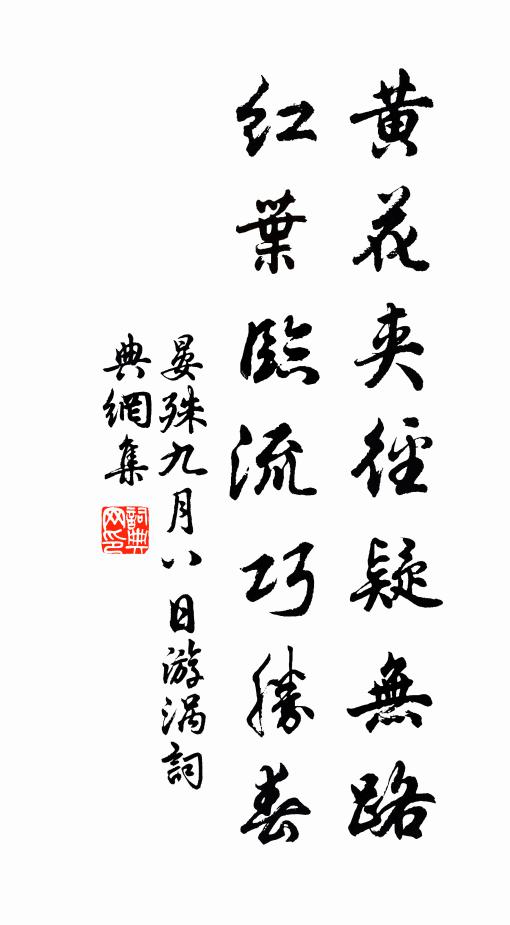 黄花夾徑疑無路
紅葉臨流巧勝春
晏殊九月八日游渦詞
典網集
詞典網印